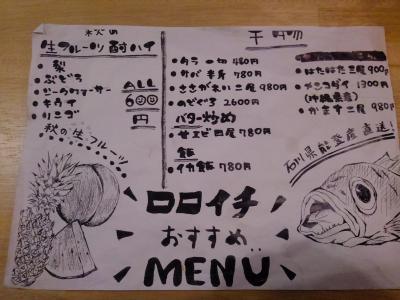 秋の
生フルーツ酎ハイ
・梨
・ぶどう
・シークワーサー
・キウイ
・リンゴ
ALL
600
円
秋の生フルーツ
干物
・タラ 一切 480円
・サバ 半身 780円
・ささがれい 二尾 980円
・のどぐろ 2600円
バター炒め
・甘エビ 四尾 780円
飯
・イカ飯 780円
・はたはた 三尾 900円
1300円
(沖縄県産)
・かます 二尾 980円
石川県能登産直送!
ロロイチ
おすすめ
MENU